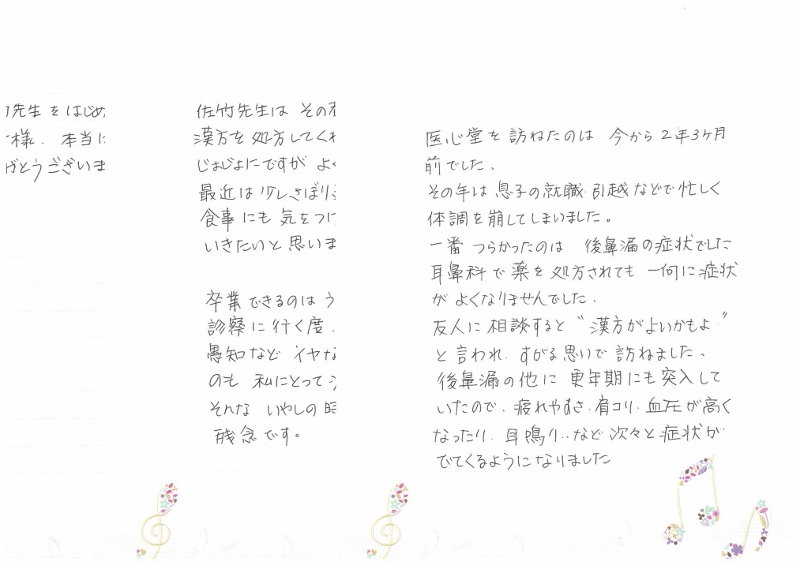 医心堂を訪ねたのは 今から2年3ヶ月
前でした、
その年は息子の就職 引越などで忙しく
体調を崩してしまいました。
一番 つらかったのは 後鼻漏の症状でした
耳鼻科で薬を処方されても 一何に症状
がよくなりませんでした.
友人に相談すると“漢方がよいかもよ”
と言われ すがる思いで訪ねました。
後鼻漏の他に 更年期にも突入して
いたので、疲れやすさ、肩コリ、血圧が高く
なったり、耳鳴り‥など 次々と症状が
でてくるようになりました
佐竹先生は その
漢方を処方してくれ
じょじょにですが よく
最近は少しさぼり
食事にも気をつけ
いきたいと思いま
卒業できるのは う
診察に行く度、
愚知など イヤな
のも 私にとって
そんな いやしの時
残念です。
先生をはじめ
様、本当に
がとうございま